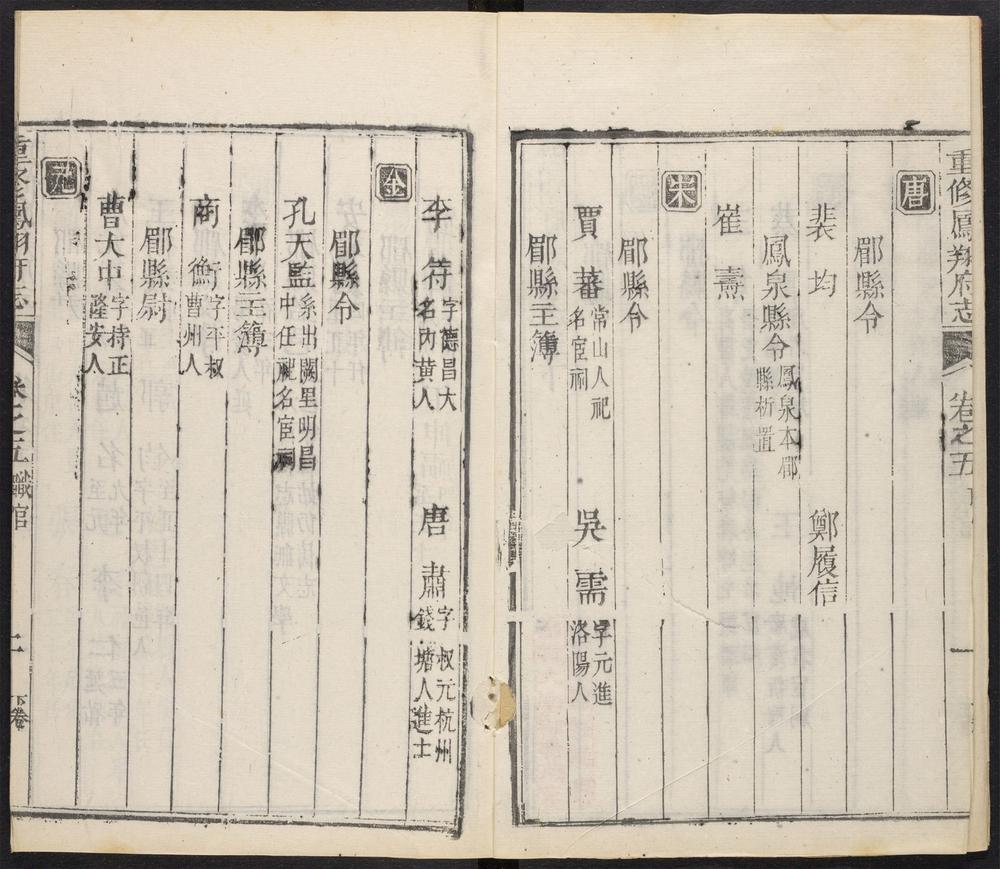 重修鳳翔府志 卷之五 一
唐
郿縣令
裴均 鄭履信
鳳泉縣令 鳳泉本郿
縣析置
崔燾
宋
郿縣令
賈蕃 常山人祀
名宦祠
吳需 字元進
洛陽人
郿縣主簿
李符 字德昌大
名內黄人
唐肅 字叔元杭州
錢塘人進士
金
郿縣令
孔天監 系出闕里明昌
中任祀名宦祠
郿縣主簿
商衡 字平叔
曹州人
郿縣尉
曹大中 字持正
隆安人
元
重修鳳翔府志 卷之五 職官